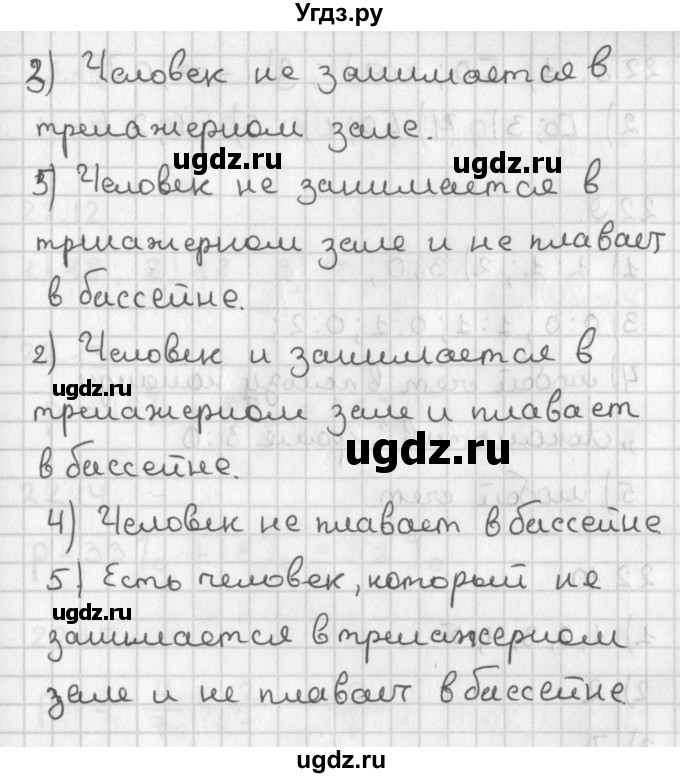 Угдз.ру
3) Человек не занимается в
тренажерном зале.
ugdz.ru
3) Человек не занимается в
тренажерном зале и не плавает
в бассейне.
2) Человек и занимается в
ugdz.ru
тренажерном зале и плавает
ugdz.ru
в бассейне.
4) Человек не плавает в бассейне
5) Есть человек, который не
ugdz.ru
занимается в тренажерном
зале и не плавает в бассейне
ugdz.ru